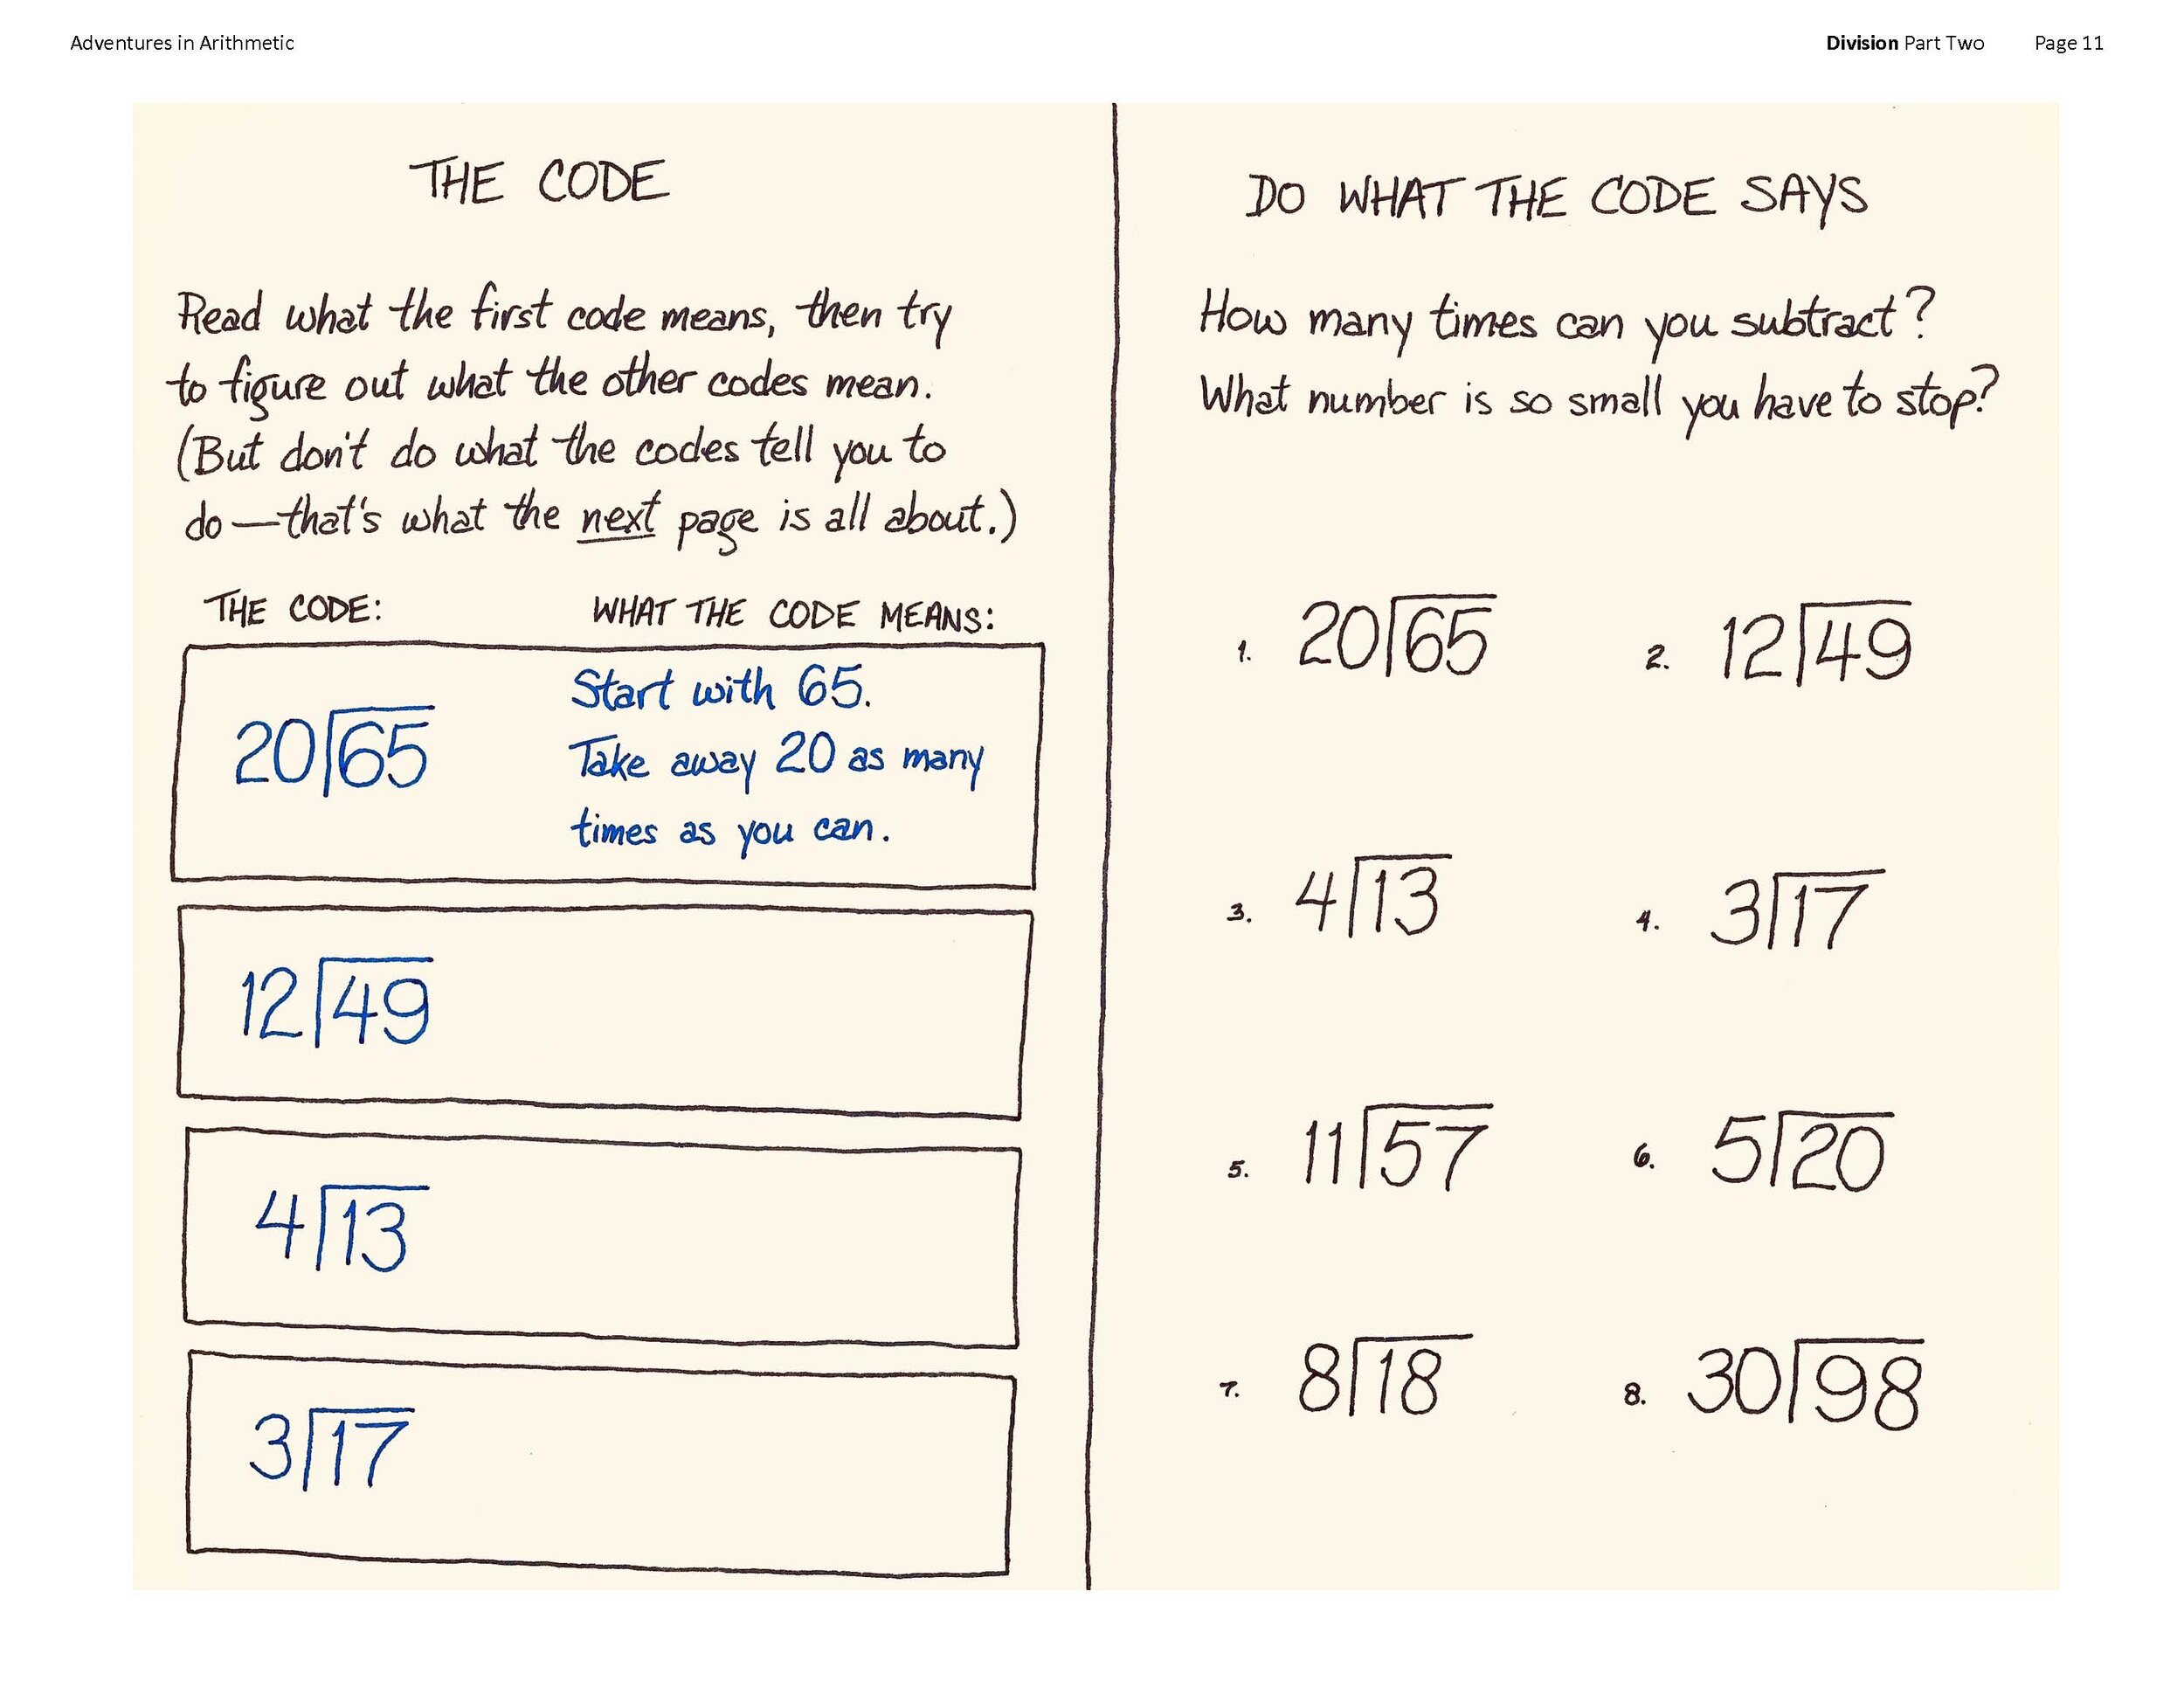 Adventures in Arithmetic
Division Part Two Page 11
THE CODE
Read what the first code means, then try
to figure out what the other codes mean.
(But don't do what the codes tell you to
do—that's what the next page is all about.)
THE CODE: WHAT THE CODE MEANS:
20⟌65
Start with 65.
Take away 20 as many
times as you can.
12⟌49
4⟌13
3⟌17
DO WHAT THE CODE SAYS
How many times can you subtract?
What number is so small you have to stop?
1. 20⟌65 2. 12⟌49
3. 4⟌13 4. 3⟌17
5. 11⟌57 6. 5⟌20
7. 8⟌18 8. 30⟌98